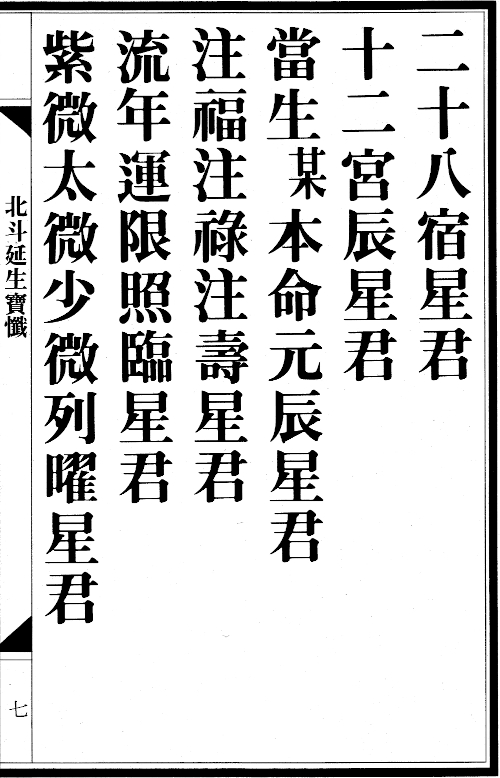 二十八宿星君
十二宮辰星君
當生某本命元辰星君
注福注祿注壽星君
流年運限照臨星君
紫微太微少微列曜星君
北斗延生寶懺
七